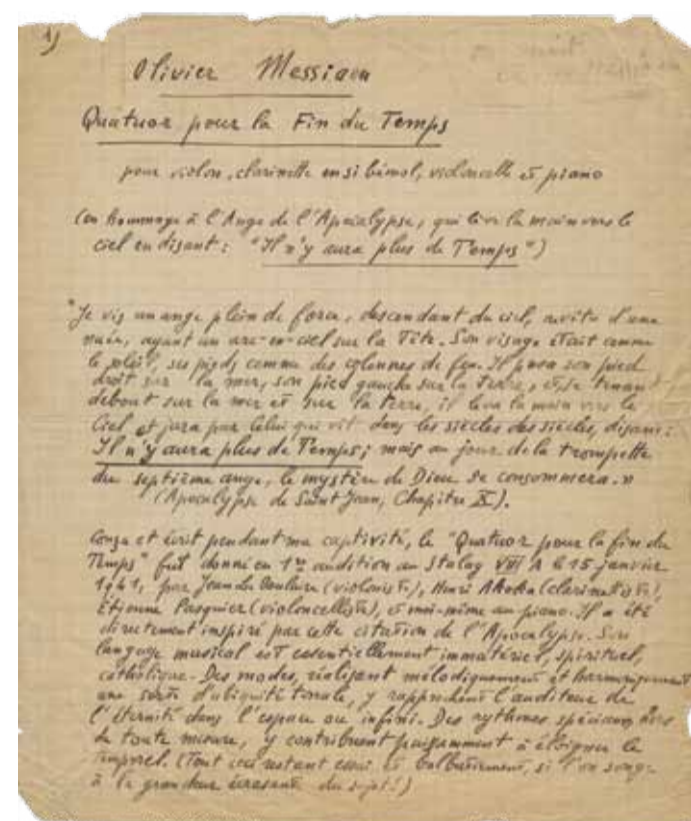 1)
Olivier Messiaen
Quatuor pour la Fin du Temps
pour violon, clarinette en si bémol, violoncelle et piano
(en hommage à l'Ange de l'Apocalypse, qui lève la main vers le
ciel en disant : "Il n'y aura plus de Temps")
"Je vis un ange plein de force, descendant du ciel, revêtu d'une
nuée, ayant un arc-en-ciel sur la Tête. Son visage était comme
le soleil, ses pieds comme des colonnes de feu. Il posa son pied
droit sur la mer, son pied gauche sur la terre, et, se tenant
debout sur la mer et sur la terre, il leva la main vers le
Ciel et jura par Celui qui vit dans les siècles des siècles, disant :
Il n'y aura plus de Temps; mais au jour de la trompette
du septième ange, le mystère de Dieu se consommera."
(Apocalypse de Saint Jean, Chapitre X).
Conçu et écrit pendant ma captivité, le "Quatuor pour la fin du
Temps" fut donné en 1re audition au Stalag VIII A le 15 janvier
1941, par Jean Le Boulaire (violoniste), Henri Akoka (clarinettiste),
Étienne Pasquier (violoncelliste), et moi-même au piano. Il a été
directement inspiré par cette citation de l'Apocalypse. Son
langage musical est essentiellement immatériel, spirituel,
catholique. Des modes, réalisant mélodiquement et harmoniquement
une sorte d'ubiquité tonale, y rapprochent l'auditeur de
l'éternité dans l'espace ou infini. Des rythmes spéciaux, hors
de toute mesure, y contribuent puissamment à éloigner le
temporel. (Tout ceci restant essai et balbutiement, si l'on songe
à la grandeur écrasante du sujet!)